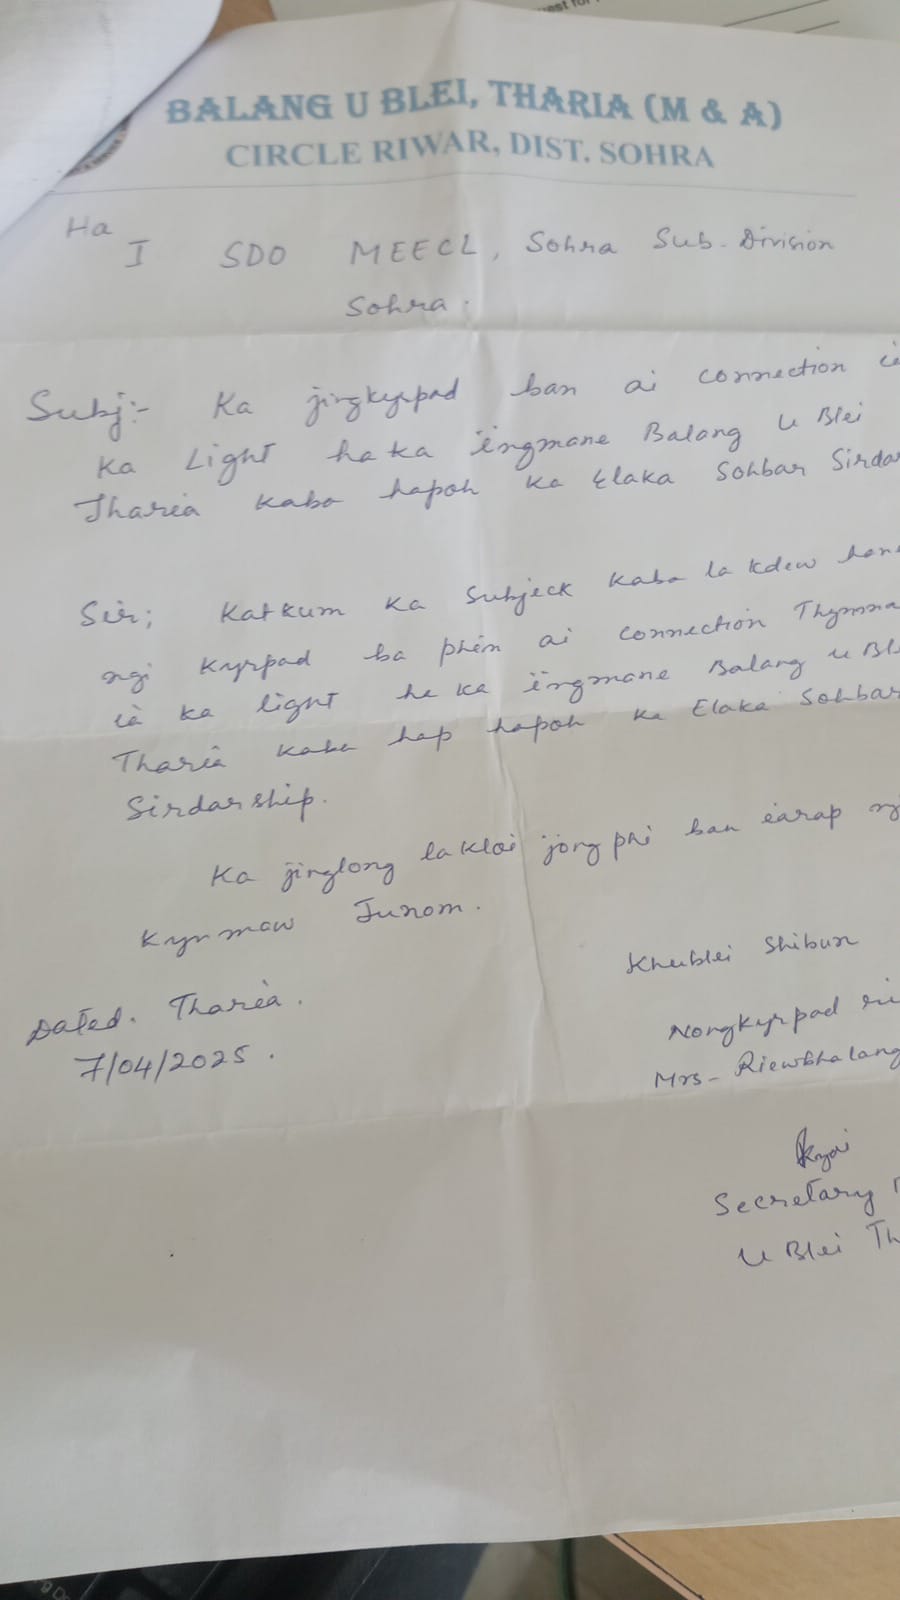 uest for
BALANG U BLEI, THARIA (M & A)
CIRCLE RIWAR, DIST. SOHRA
Ha
I SDO MEECL, Sohra Sub-Division
Sohra.
Subj:- Ka jingkyrpad ban ai connection ïa
Ka Light ha ka ïingmane Balang U Blei
Tharia kaba hapoh ka Elaka Sohbar Sirdar
Sir; Katkum ka Subjeck kaba la kdew han
ngi kyrpad ba phin ai connection Thymma
ïa ka light ha ka ïingmane Balang U Bl
Tharia kaba hap hapoh ka Elaka Sohbar
Sirdarship.
Ka jinglong lakloi jong phi ban ïarap ng
Kynmaw Junom.
Khublei Shibun
Dated. Tharia.
7/04/2025.
Nongkyrpad
Mrs- Riewbhalang
Secretary
U Blei Th